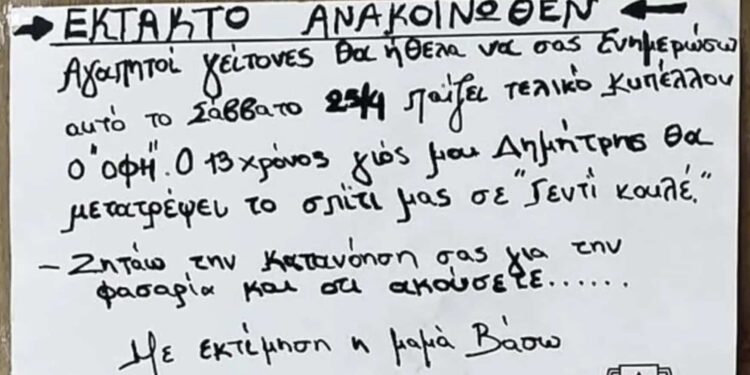 ΕΚΤΑΚΤΟ ΑΝΑΚΟΙΝΩΘΕΝ
Αγαπητοί γείτονες θα ήθελα να σας Ενημερώσω
αυτό το Σάββατο 25/4 παίζει τελικό Κυπέλλου
ο "ΟΦΗ". Ο 13χρόνος γιός μου Δημήτρης θα
μετατρέψει το σπίτι μας σε "Γεντί κουλέ."
- Ζητάω την κατανόηση σας για την
φασαρία και οτι ακούσετε......
Με εκτίμηση η μαμά Βάσω